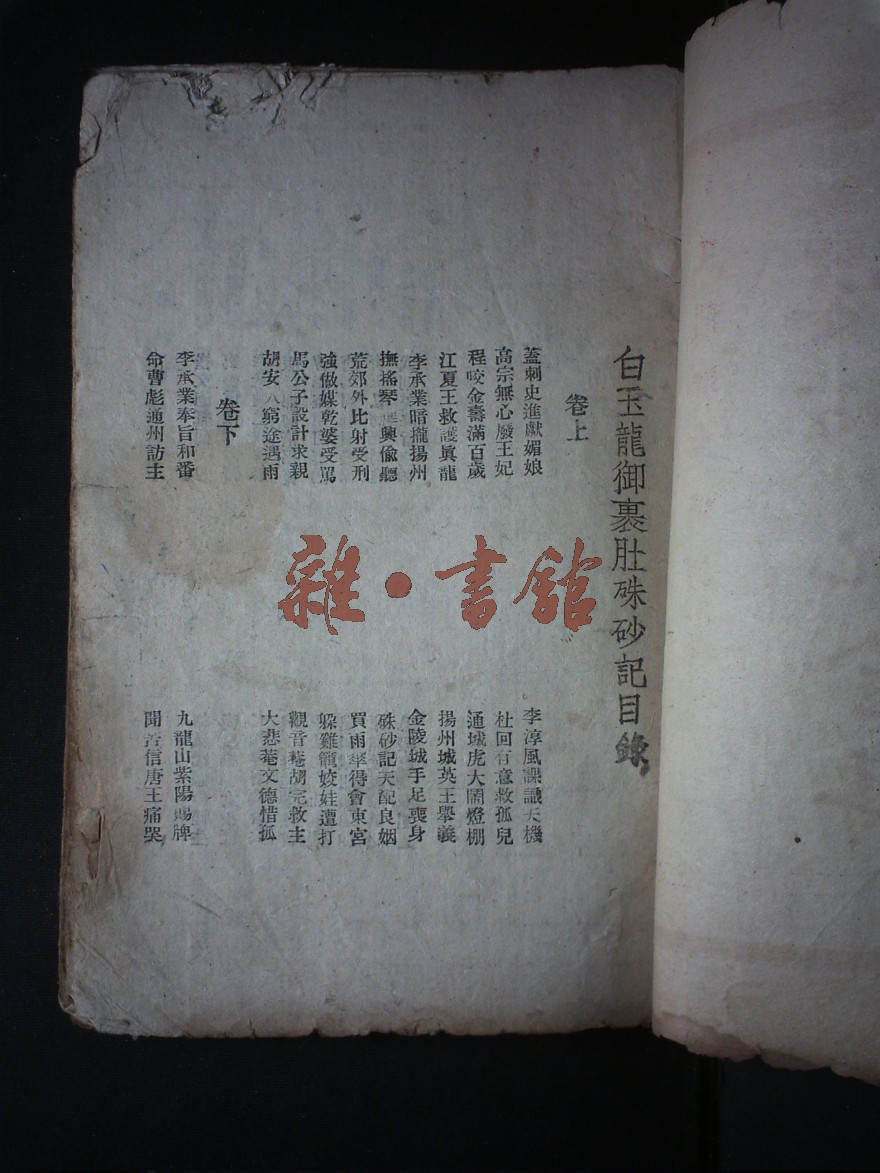 白玉龍御裹肚硃砂記目錄
卷上
蓋刺史進獻媚娘 李淳風課識天機
高宗無心廢王妃 杜回有意救孤兒
程咬金壽滿百歲 通城虎大鬧燈棚
江夏王救護眞龍 揚州城英王舉義
李承業暗攏揚州 金陵城手足喪身
撫搖琴 興偸聽 硃砂記天配良姻
荒郊外比射受刑 買雨傘得會東宮
強做媒乾婆受罵 躲雞籠姣娃遭打
馬公子設計求親 觀音菴胡完救主
胡安 窮途遇雨 大悲菴文德惜孤
卷下
李承業奉旨和番 九龍山紫陽賜牌
命曹彪通州訪主 聞 信唐王痛哭
雜·書館